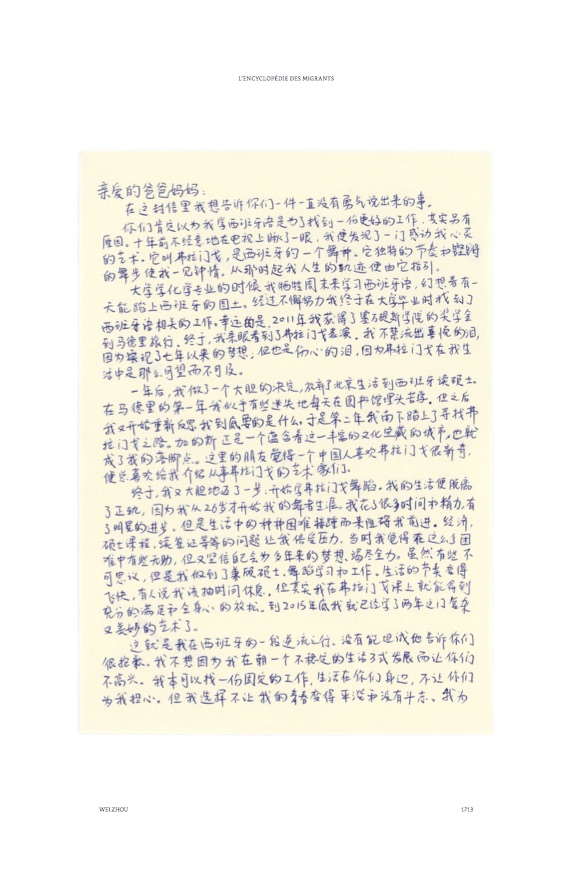 L'ENCYCLOPÉDIE DES MIGRANTS
亲爱的爸爸妈妈：
在这封信里我想告诉你们一件一直没有勇气说出来的事。
你们肯定以为我学西班牙语是为了找到一份更好的工作，其实另有
原因。十年前不经意地在电视上瞅了一眼，我便发现了一门感动我心灵
的艺术。它叫弗拉门戈，是西班牙的一个舞种。它独特的节奏和铿锵
的舞步使我一见钟情。从那时起我人生的轨迹便由它指引。
大学学化学专业的时候，我牺牲周末来学习西班牙语，幻想着有一
天能踏上西班牙的国土。经过不懈努力我终于在大学毕业时找到了
西班牙语相关的工作。幸运的是，2011年我获得了塞万提斯学院的奖学金
到马德里旅行。终于，我亲眼看到了弗拉门戈表演。我不禁流出喜悦的泪，
因为实现了七年以来的梦想，但也是伤心的泪，因为弗拉门戈在我生
活中是那么可望而不可及。
一年后，我做了一个大胆的决定，放弃了北京生活到西班牙读硕士。
在马德里的第一年我似乎有些迷失地每天在图书馆埋头苦学。但之后
我又开始重新反思我到底要的是什么。于是第二年我南下踏上了寻找弗
拉门戈之路。加的斯正是一个蕴含着这一丰富的文化宝藏的城市，也就
成了我的落脚点。这里的朋友觉得一个中国人喜欢弗拉门戈很新奇，
便总喜欢给我介绍从事弗拉门戈的艺术家们。
终于，我又大胆地迈了一步，开始学弗拉门戈舞蹈。我的生活便脱离
了正轨，因为我从26岁才开始我的舞者生涯。我花了很多时间和精力，有
了明显的进步。但是生活中的种种困难接踵而来阻碍我前进。经济，
硕士课程，续签证等等的问题让我倍受压力，当时我觉得在这么多困
难中有些无助，但又坚信自己会为多年来的梦想竭尽全力。虽然有些不
可思议，但是我做到了兼顾硕士、舞蹈学习和工作。生活的节奏变得
飞快，有人说我该抽时间休息，但其实我在弗拉门戈课上就能得到
充分的满足和全身心的放松。到2015年底我就已经学了两年这门复杂
又美妙的艺术了。
这就是我在西班牙的一段逆流之行。没有能坦诚地告诉你们
很抱歉。我不想因为我在朝一个不稳定的生活方式发展而让你们
不高兴。我本可以找一份固定的工作，生活在你们身边，不让你们
为我担心。但我选择不让我的青春变得平淡和没有斗志。我为
WEI ZHOU
1713